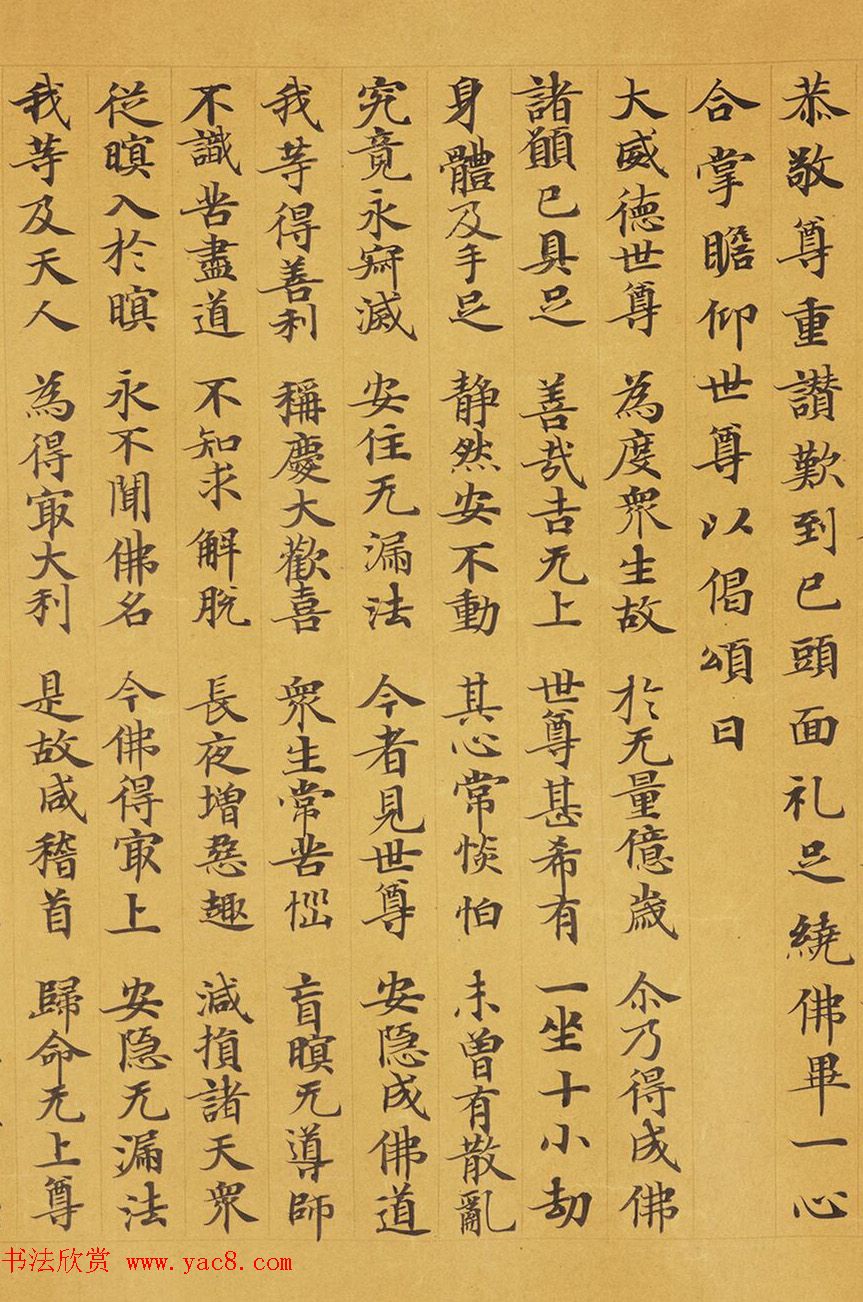 恭敬尊重讃歎到已頭面礼足繞佛畢一心
合掌瞻仰世尊以偈頌曰
大威德世尊 為度衆生故 於无量億歳 尒乃得成佛
諸願已具足 善哉吉无上 世尊甚希有 一坐十小劫
身體及手足 静然安不動 其心常惔怕 未曽有散亂
究竟永寂滅 安住无漏法 今者見世尊 安隠成佛道
我等得善利 稱慶大歡喜 衆生常苦惱 盲瞑无導師
不識苦盡道 不知求解脱 長夜增惡趣 減損諸天衆
從瞑入於瞑 永不聞佛名 今佛得㝡上 安隠无漏法
我等及天人 為得㝡大利 是故咸稽首 歸命无上尊
书法欣赏 www.yac8.com